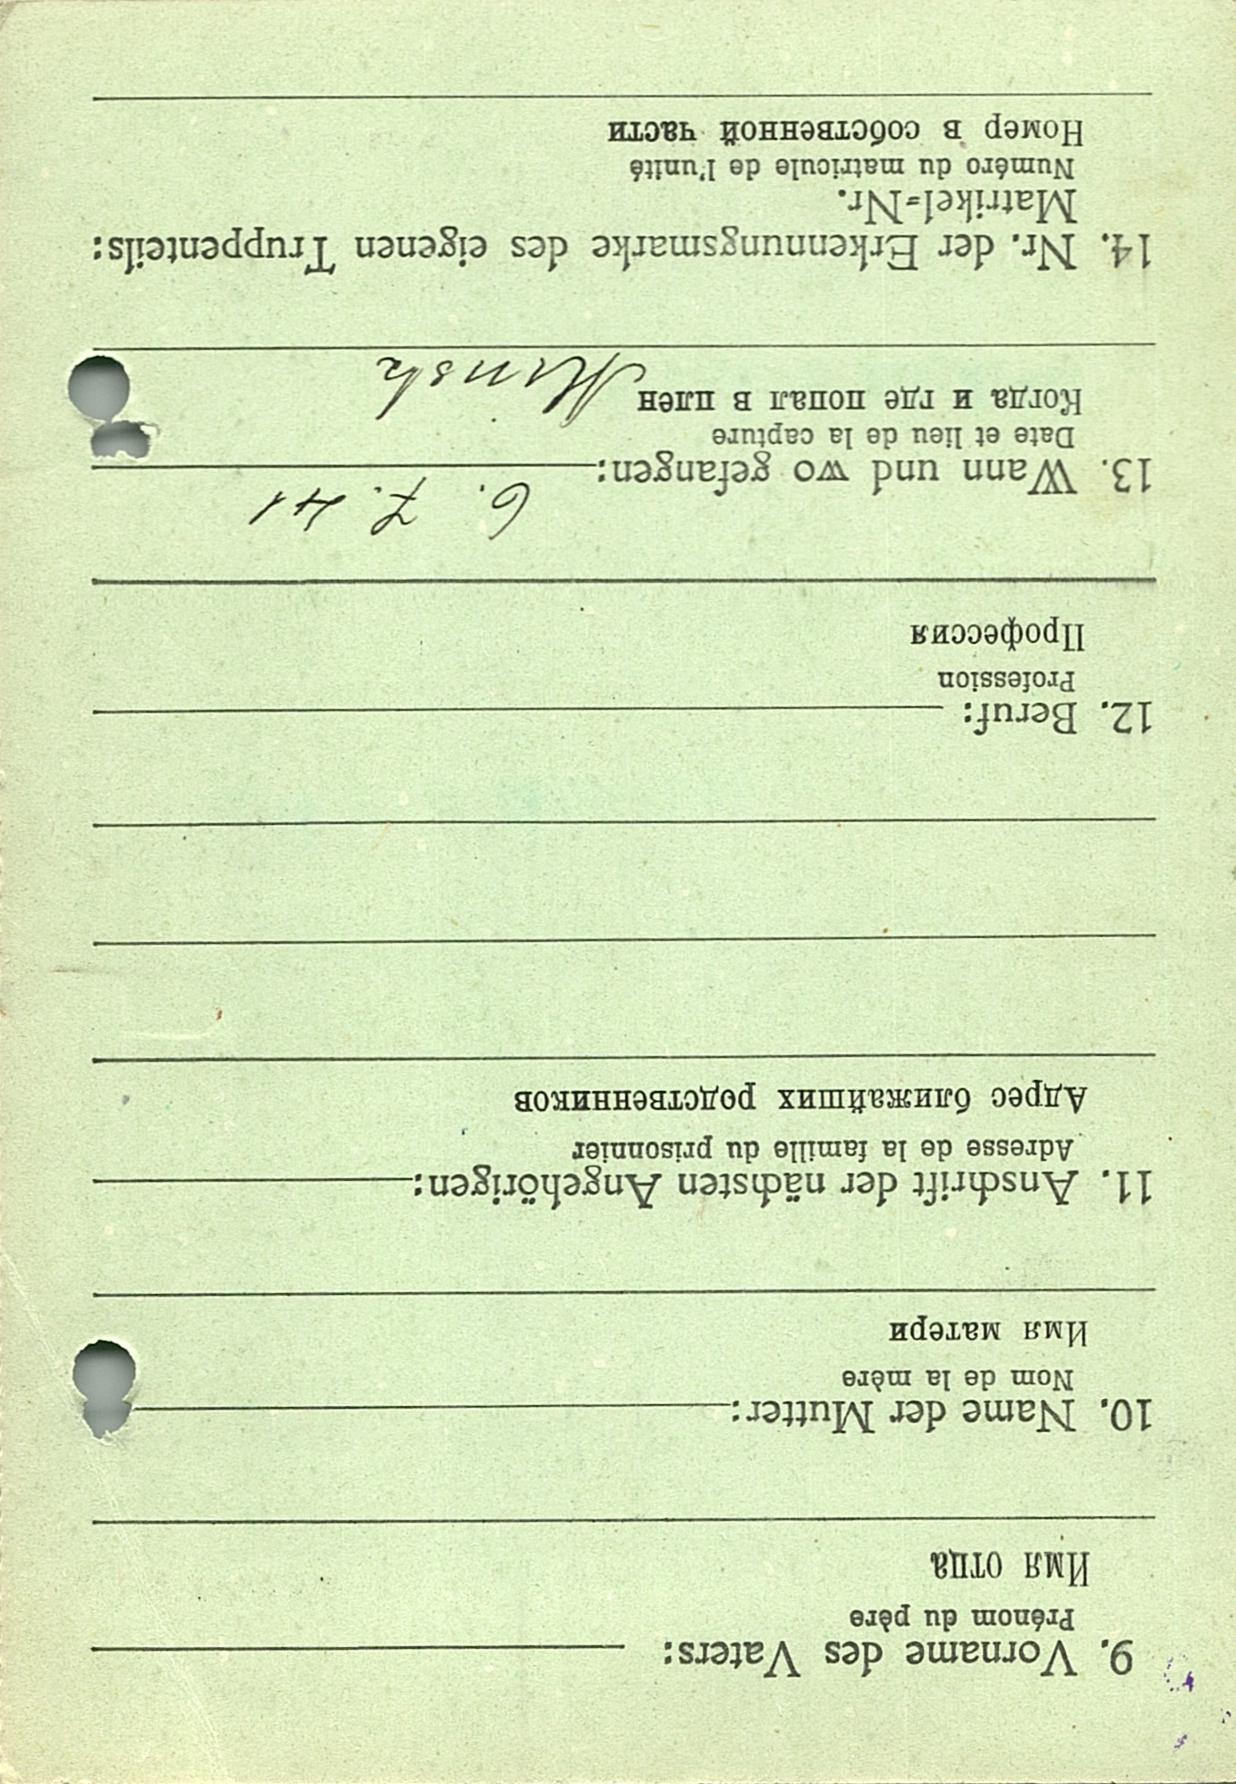 9. Vorname des Vaters:
Prénom du père
Имя отца
10. Name der Mutter:
Nom de la mère
Имя матери
11. Anschrift der nächsten Angehörigen:
Adresse de la famille du prisonnier
Адрес ближайших родственников
12. Beruf:
Profession
Профессия
6. 7. 41
13. Wann und wo gefangen:
Date et lieu de la capture
Когда и где попал в плен Minsk
14. Nr. der Erkennungsmarke des eigenen Truppenteils:
Matrikel=Nr.
Numéro du matricule de l'unité
Номер в собственной части